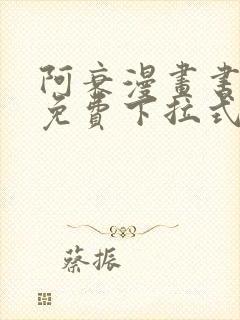 阿衰漫畫書
免費下拉式
蔡振